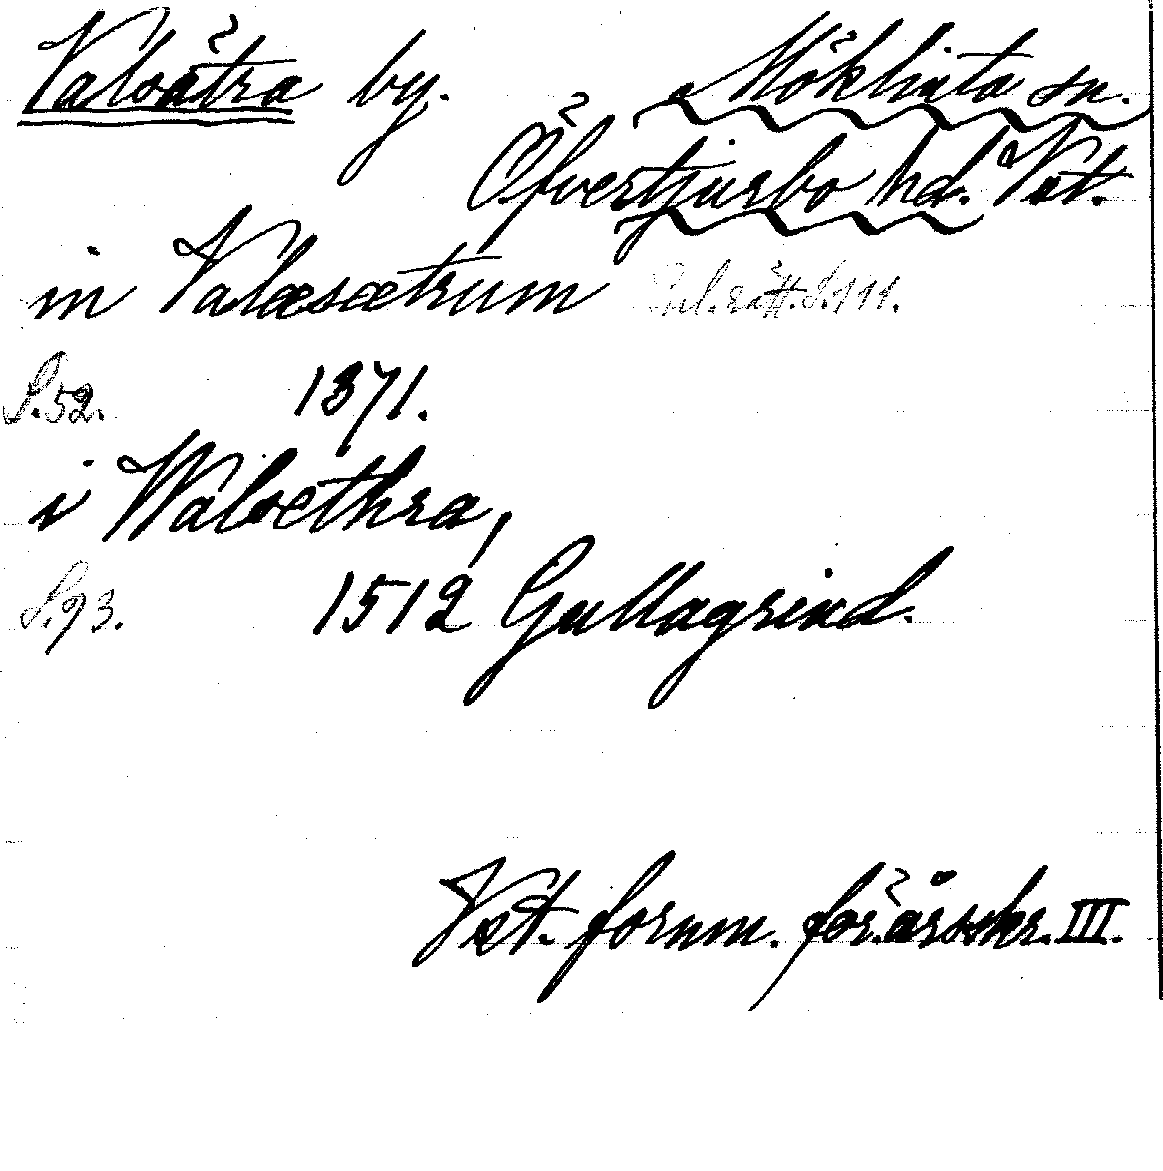 Valsätra by. Möklinta sn.
Öfvertjurbo hd. Vst.
in Valæsætrum rätt. S. 111.
S. 52. 1371.
i Walsethra,
S. 93. 1512 Gullagrind.
Vst. fornm. för. årsskr. III.